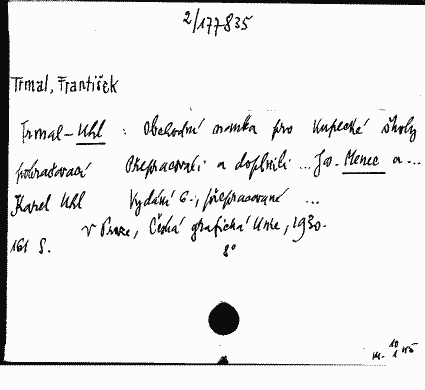 2/177835
Trmal, František
Trmal-Uhl : Obchodní nauka pro kupecké školy
pokračovací Přepracovali a doplnili ... Jos. Menec a ...
Karel Uhl Vydání 6., přepracované ...
V Praze, Česká grafická Unie, 1930.
161 S. 8°